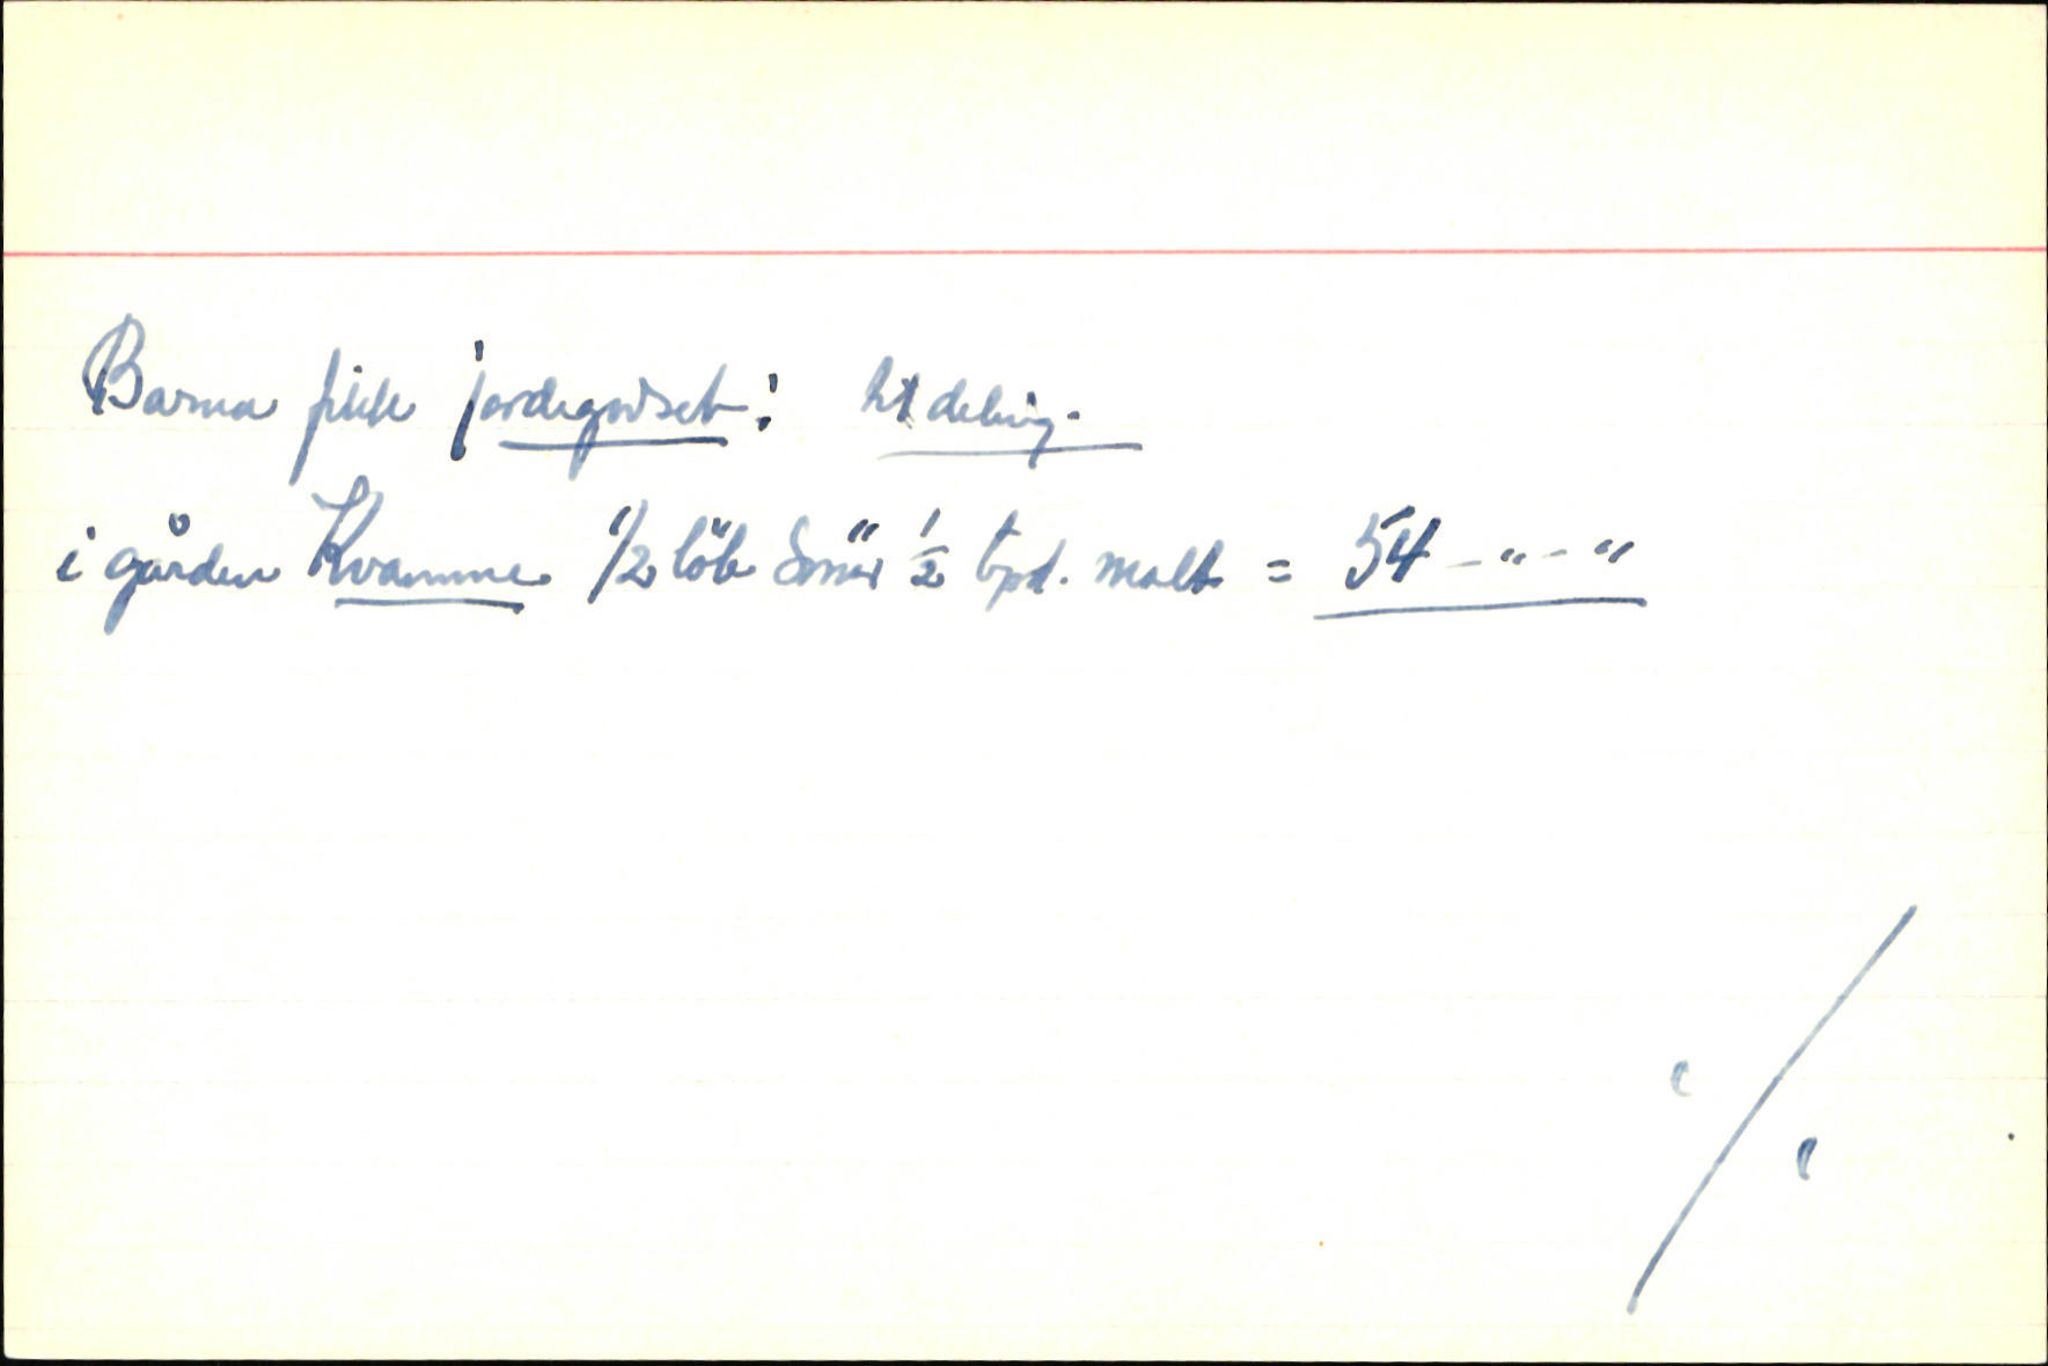 Barna fikk jordegodset: Utdeling.
i gården Kvamme 1/2 löb Smör 1/2 tpd. malt = 54 - " - "